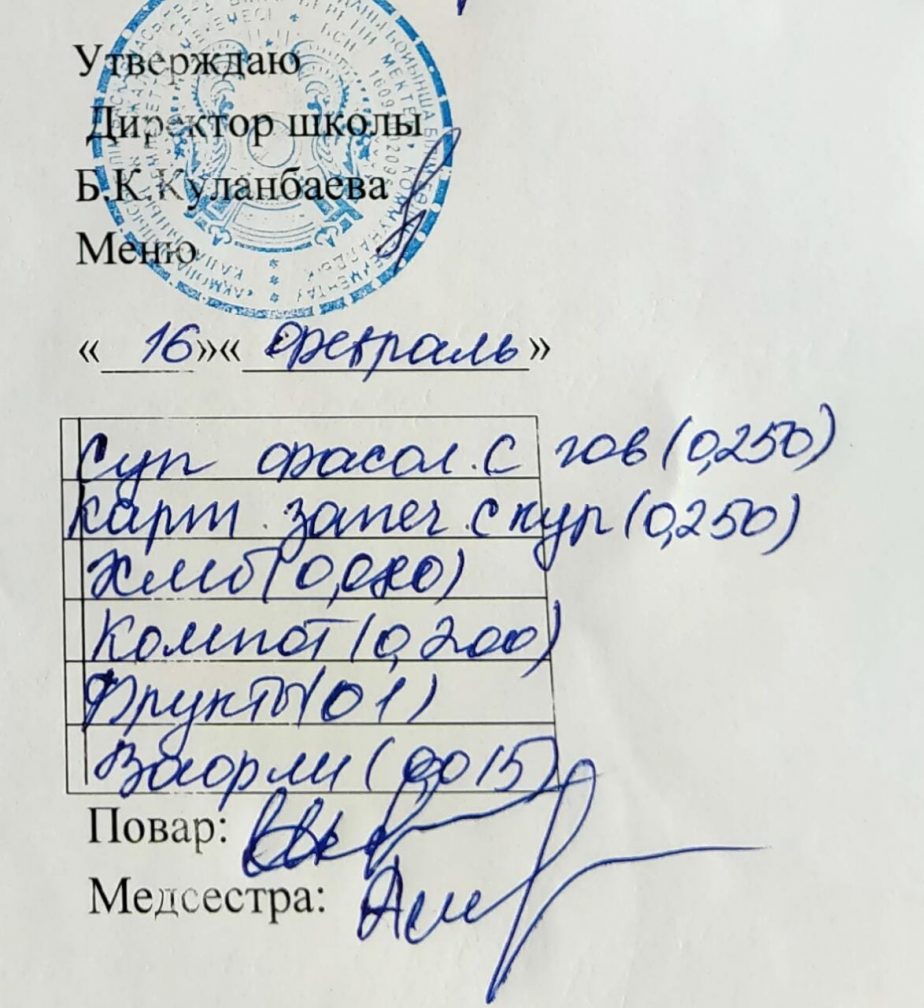 Утверждаю
Директор школы
Б.К.Куланбаева
Меню
« 16 »« февраль »
Суп фасол. с гов (0,250)
Карт. запеч. с кур (0,250)
Хлеб (0,080)
Компот (0,200)
Фрукты (0 1)
Вафли (0,015)
Повар:
Медсестра: